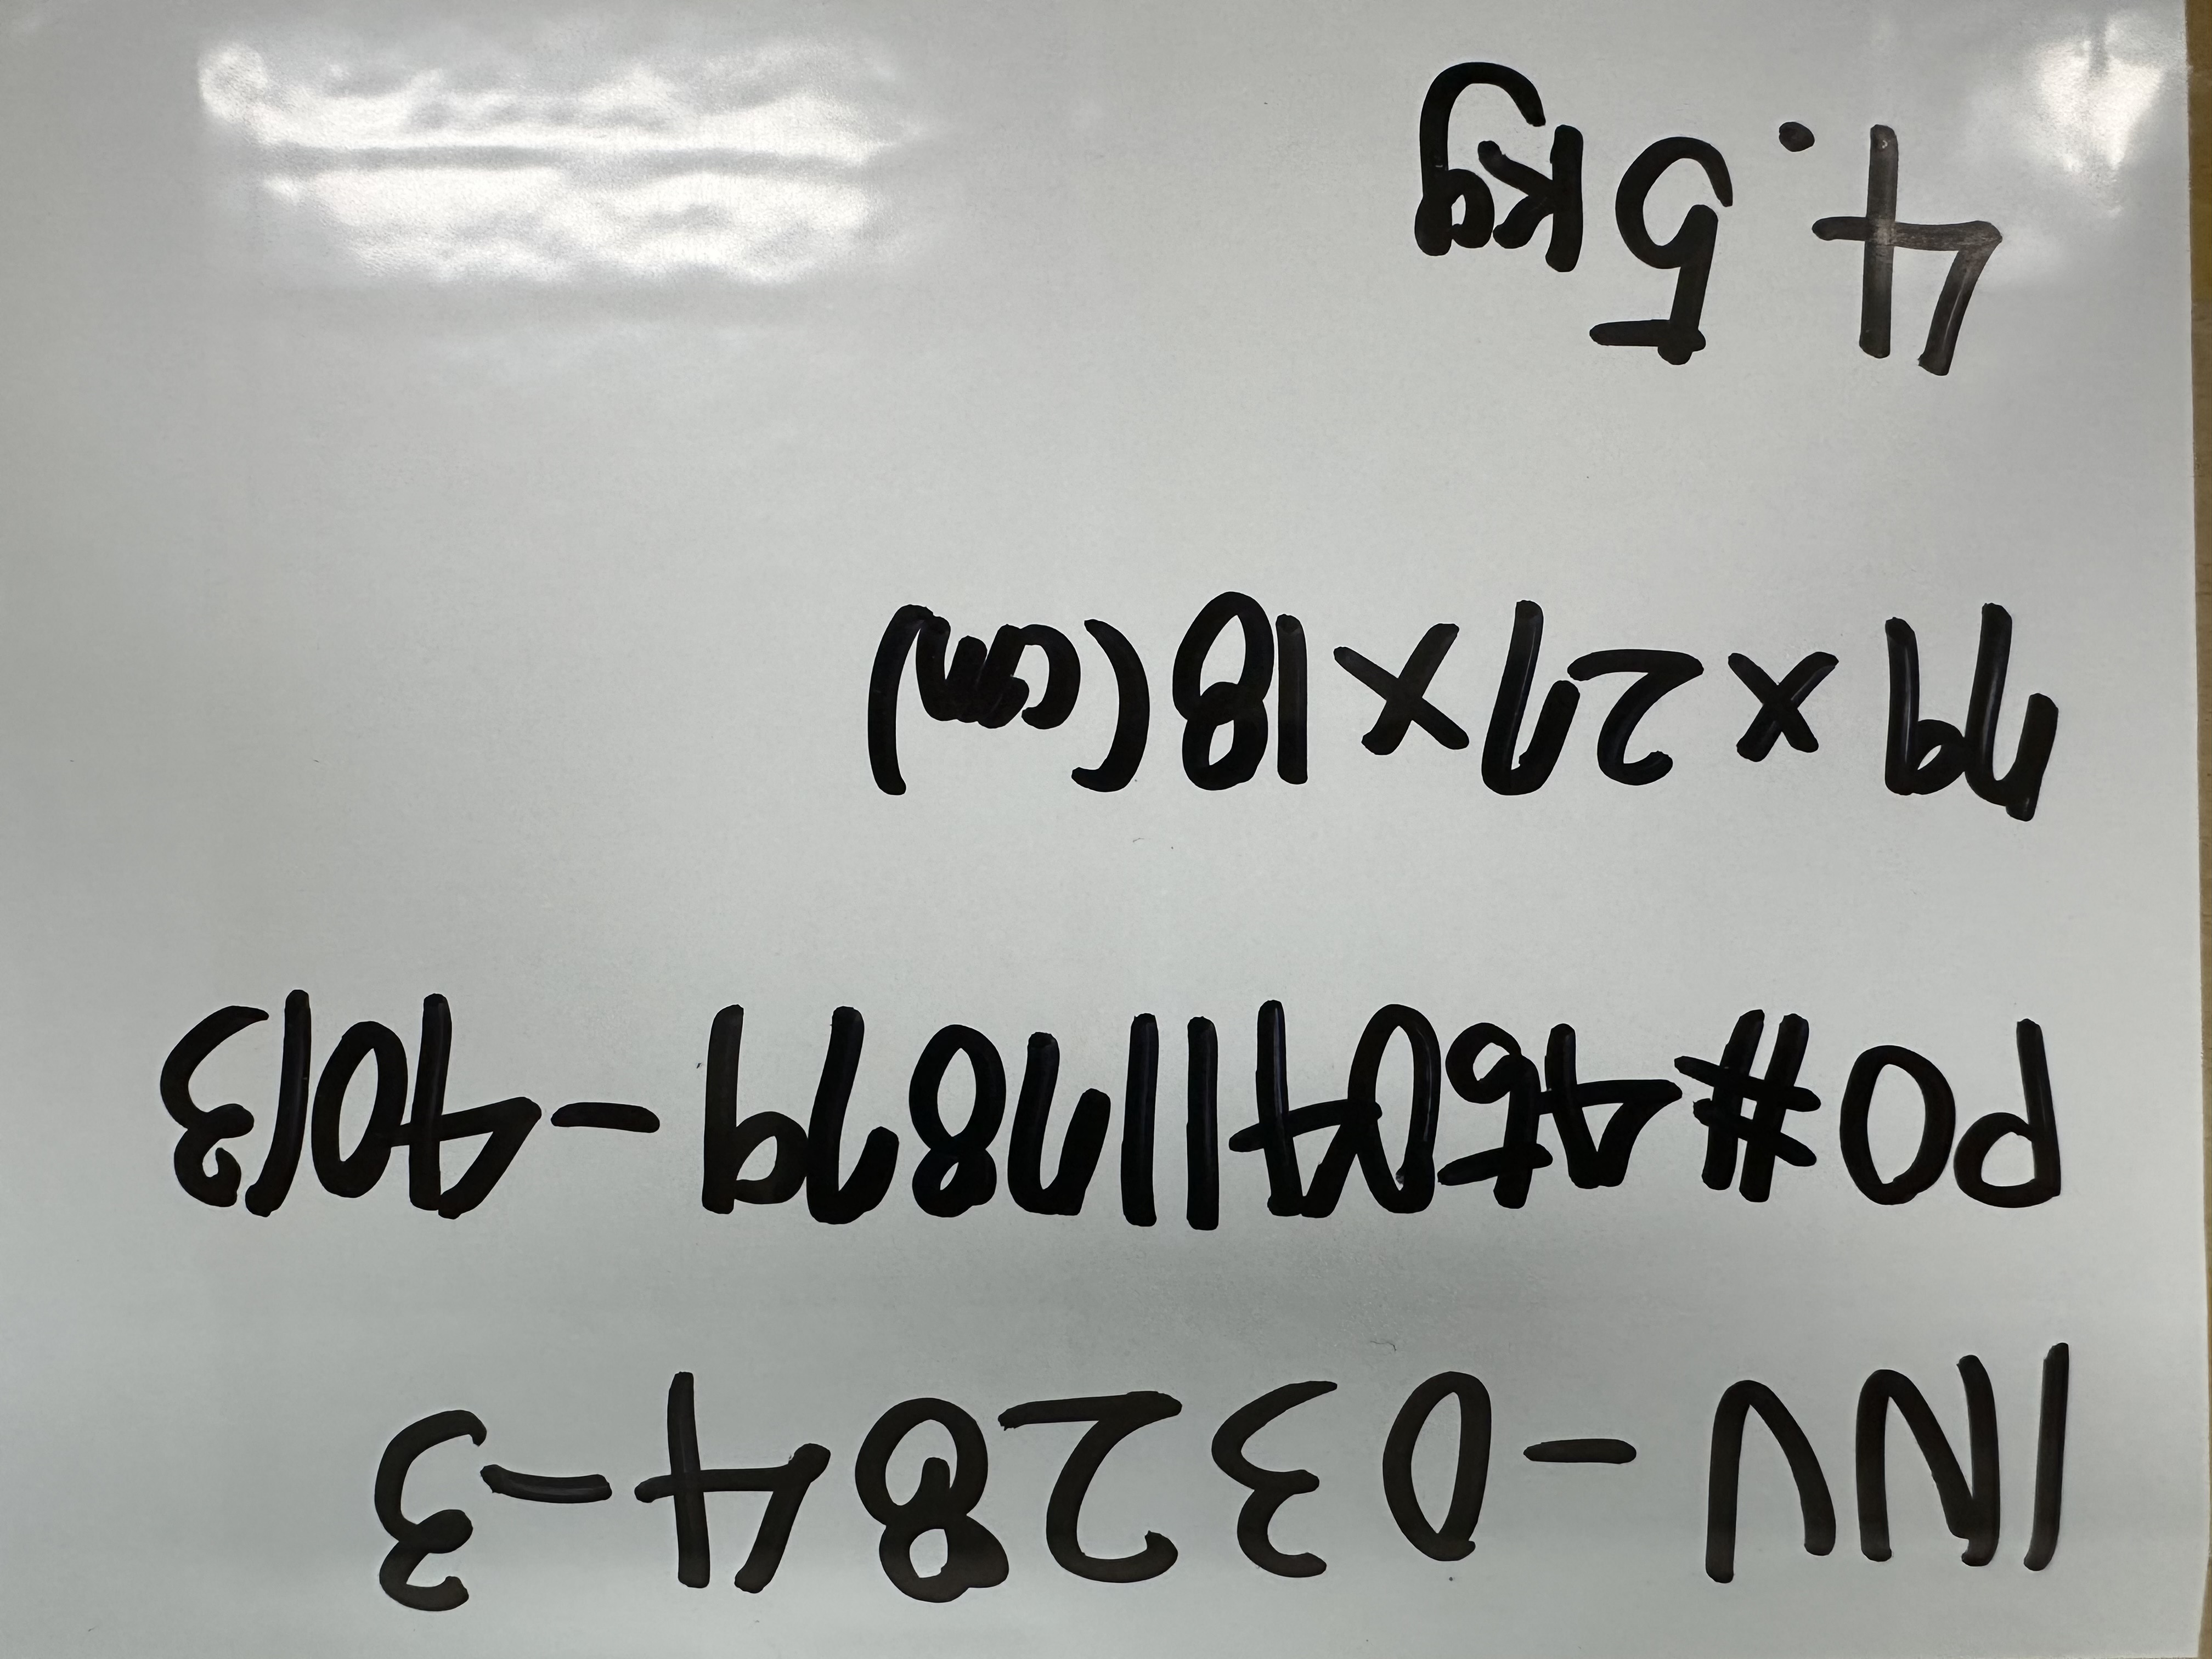 INV-03284-3
PO#4504117879-4013
79x27x18(cm)
4.5kg